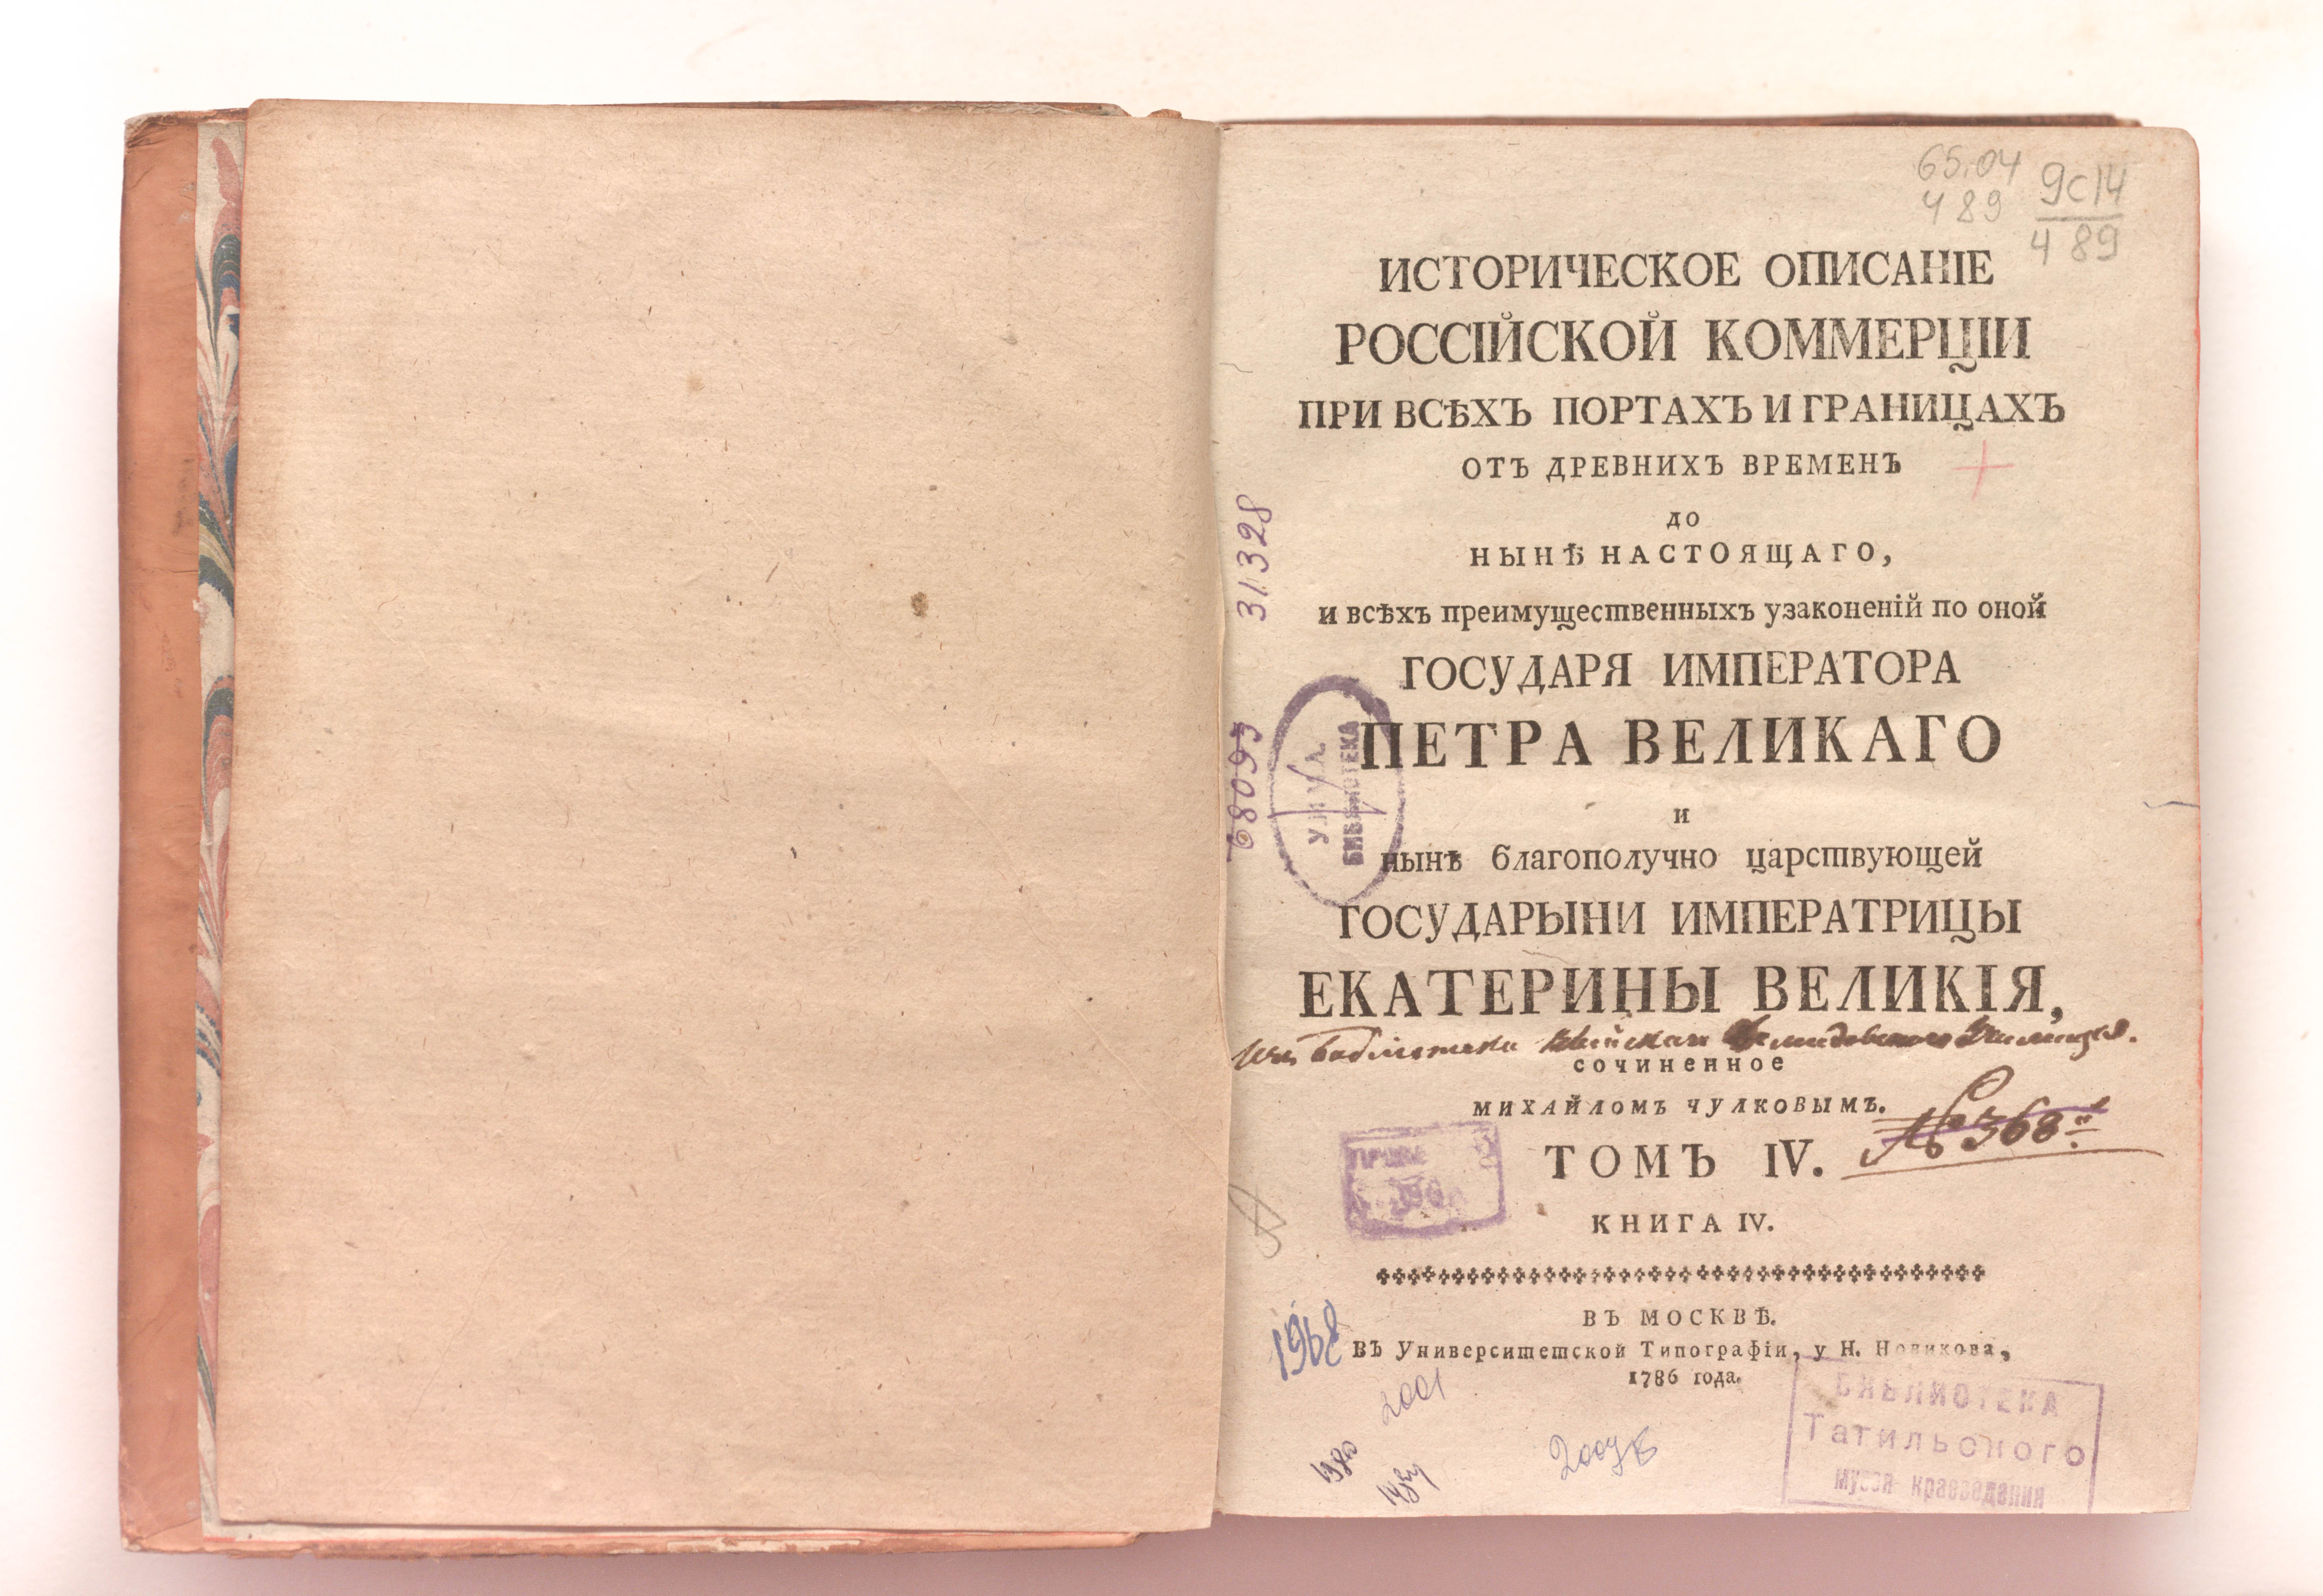 65.04
Ч 89
9с14
Ч 89
ИСТОРИЧЕСКОЕ ОПИСАНІЕ
РОССІЙСКОЙ КОММЕРЦІИ
ПРИ ВСѢХЪ ПОРТАХЪ И ГРАНИЦАХЪ
ОТЪ ДРЕВНИХЪ ВРЕМЕНЪ
ДО
НЫНѢ НАСТОЯЩАГО,
и всѣхъ преимущественныхъ узаконеній по оной
ГОСУДАРЯ ИМПЕРАТОРА
ПЕТРА ВЕЛИКАГО
и
нынѣ благополучно царствующей
ГОСУДАРЫНИ ИМПЕРАТРИЦЫ
ЕКАТЕРИНЫ ВЕЛИКІЯ,
изъ библіотеки Училища.
сочиненное
МИХАЙЛОМЪ ЧУЛКОВЫМЪ.
ТОМЪ IV.
№ 368
КНИГА IV.
ВЪ МОСКВѢ.
Въ Университетской Типографіи, у Н. Новикова,
1786 года.
31328
68093
БИБЛИОТЕКА
1968
2001
1980
2009
БИБЛИОТЕКА
Тагильского
музея краеведения